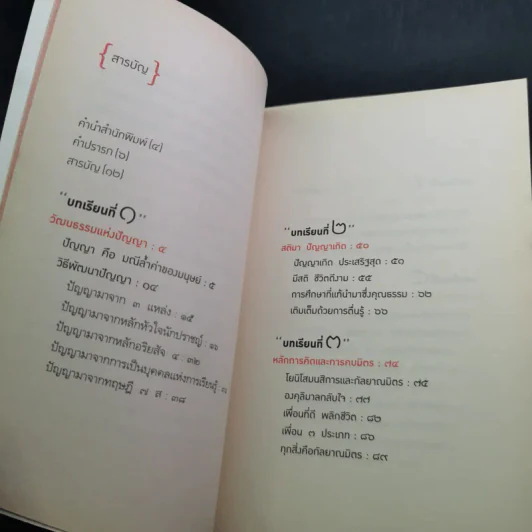 {สารบัญ}
คำนำสำนักพิมพ์ [๔]
คำปรารภ [๖]
สารบัญ [๑๒]
"บทเรียนที่ ๑"
วัฒนธรรมแห่งปัญญา : ๔
ปัญญา คือ มณีล้ำค่าของมนุษย์ : ๕
วิธีพัฒนาปัญญา : ๑๔
ปัญญามาจาก ๓ แหล่ง : ๑๕
ปัญญามาจากหลักหัวใจนักปราชญ์ : ๑๖
ปัญญามาจากหลักอริยสัจ ๔ : ๓๒
ปัญญามาจากการเป็นบุคคลแห่งการเรียนรู้ :
ปัญญามาจากทฤษฎี ๗ ส : ๓๘
"บทเรียนที่ ๒"
สติมา ปัญญาเกิด : ๕๐
ปัญญาเกิด ประเสริฐสุด : ๕๑
มีสติ ชีวิตดีงาม : ๕๕
การศึกษาที่แท้นำมาซึ่งคุณธรรม : ๖๒
เติมเต็มด้วยการตื่นรู้ : ๖๖
"บทเรียนที่ ๓"
หลักการคิดและการคบมิตร : ๗๔
โยนิโสมนสิการและกัลยาณมิตร : ๗๕
องคุลิมาลกลับใจ : ๗๗
เพื่อนที่ดี พลิกชีวิต : ๘๒
เพื่อน ๓ ประเภท : ๘๖
ทุกสิ่งคือกัลยาณมิตร : ๘๙